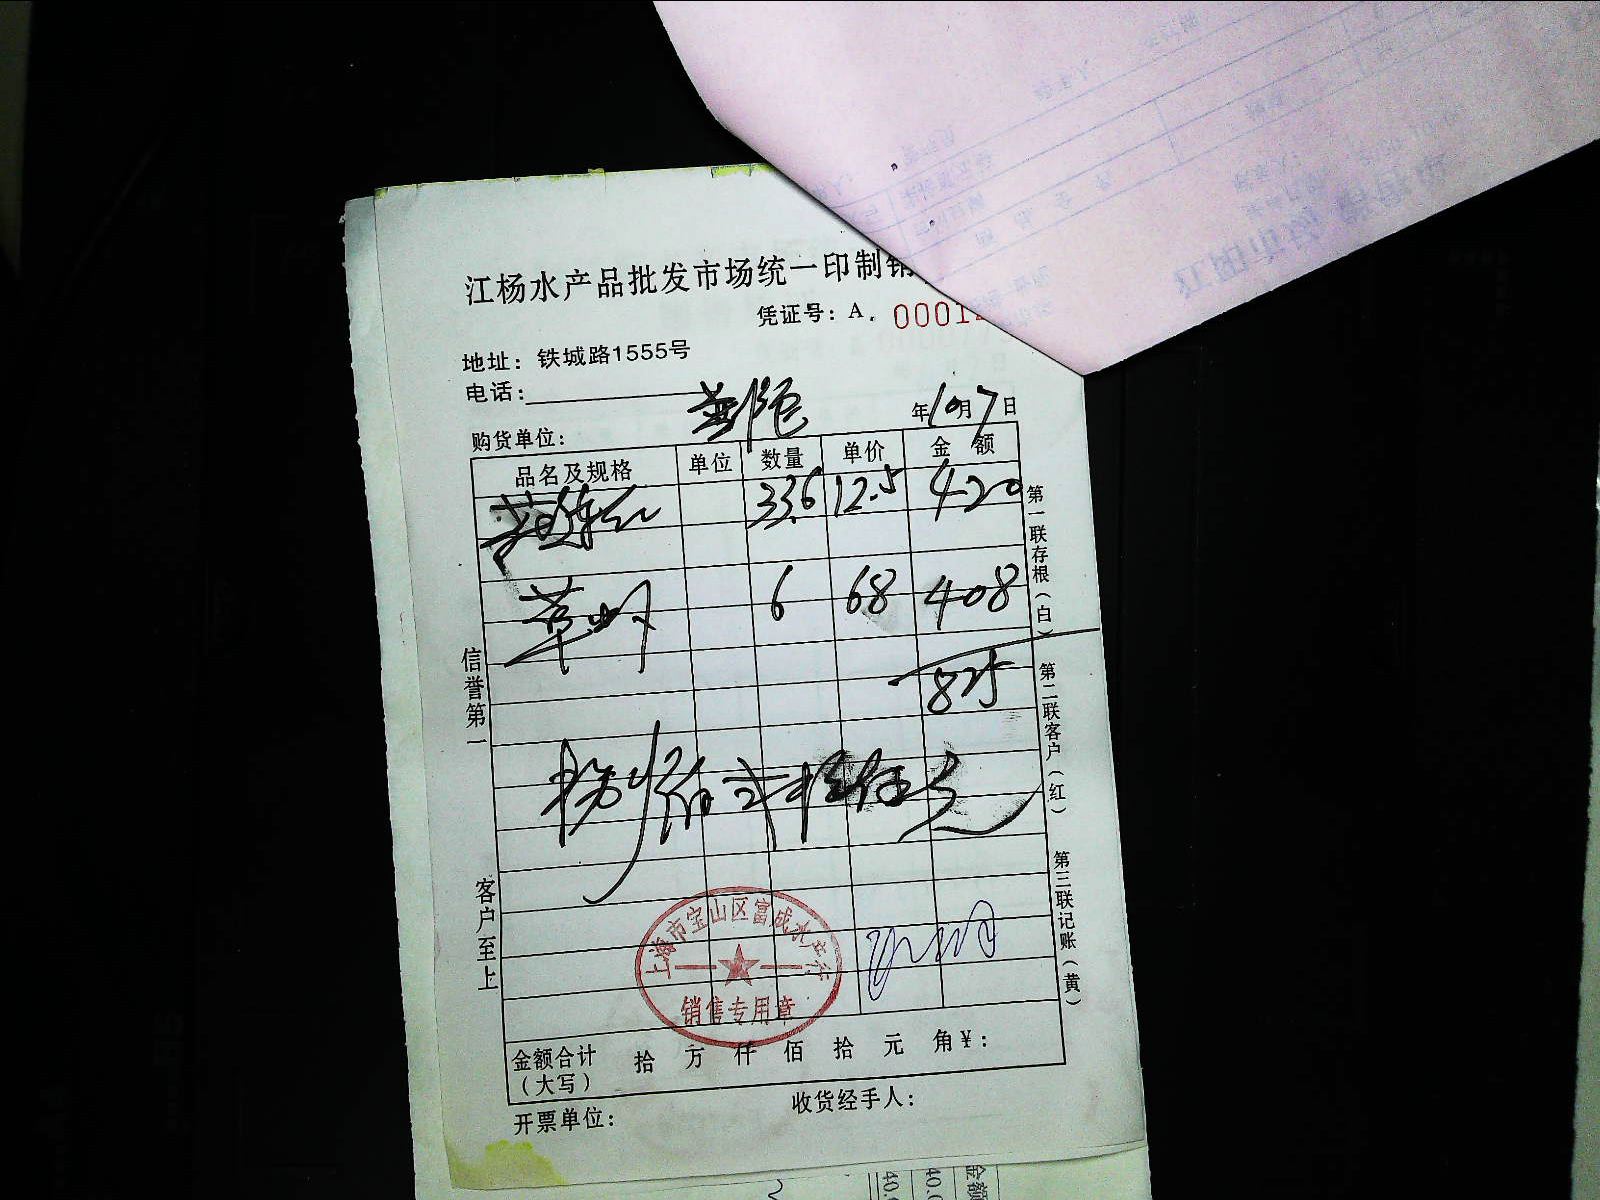 江杨水产品批发市场统一印制销
凭证号：A. 0001
地址：铁城路1555号
电话：
年10月7日
购货单位：
品名及规格 单位 数量 单价 金额
33.6 12.5 420
草虾 6 68 408
825
捌佰贰拾伍元
信誉第一
客户至上
第一联存根（白）
第二联客户（红）
第三联记账（黄）
上海市宝山区富成水产行
销售专用章
金额合计（大写） 拾 万 仟 佰 拾 元 角￥：
开票单位： 收货经手人：